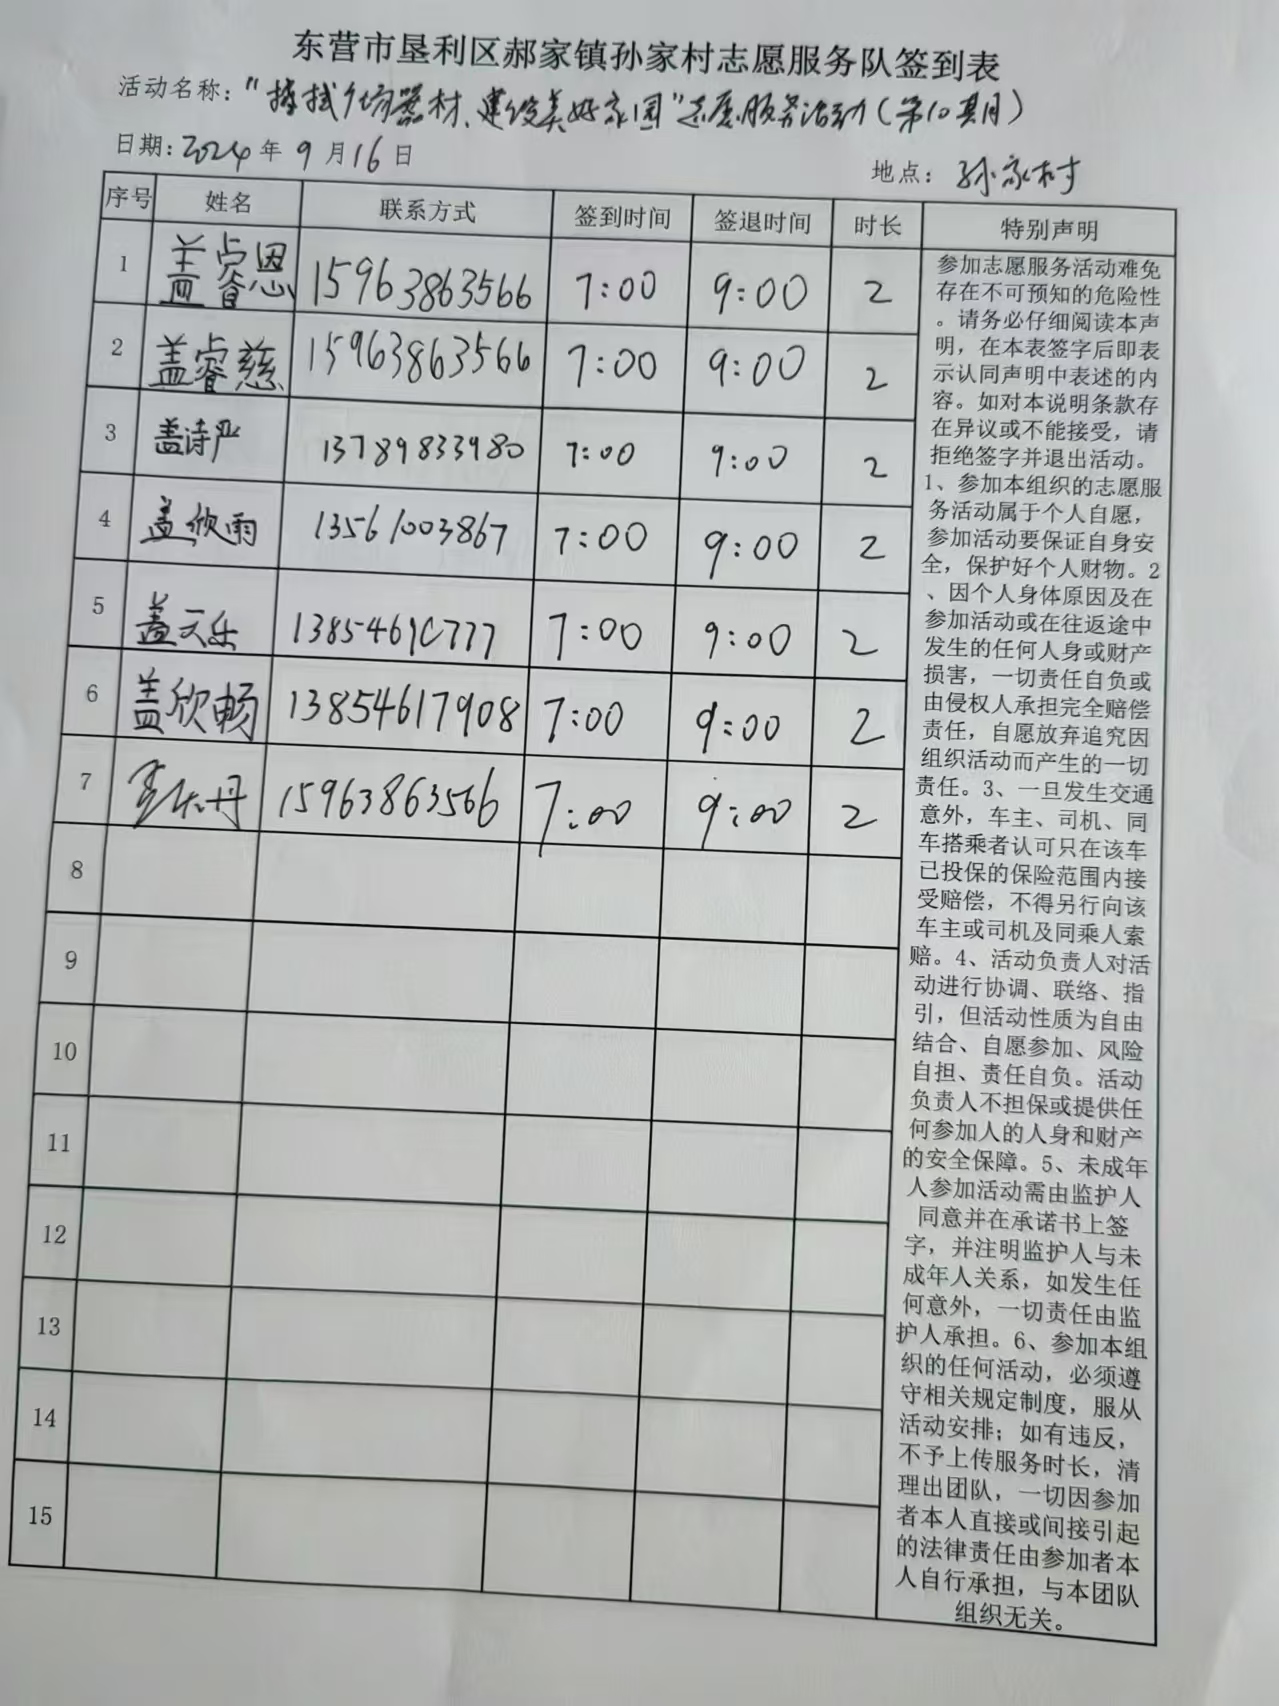 东营市垦利区郝家镇孙家村志愿服务队签到表
活动名称："擦拭广场器材、建设美好家园"志愿服务活动(第10期)
日期：2024年9月16日
地点：孙家村
序号 姓名 联系方式 签到时间 签退时间 时长 特别声明
1 盖睿恩 15963863566 7:00 9:00 2
2 盖睿慈 15963863566 7:00 9:00 2
3 盖诗严 13789833980 7:00 9:00 2
4 盖欣雨 13561003867 7:00 9:00 2
5 盖天乐 13854690777 7:00 9:00 2
6 盖欣畅 13854617908 7:00 9:00 2
7 15963863566 7:00 9:00 2
8
9
10
11
12
13
14
15
参加志愿服务活动难免
存在不可预知的危险性
。请务必仔细阅读本声
明，在本表签字后即表
示认同声明中表述的内
容。如对本说明条款存
在异议或不能接受，请
拒绝签字并退出活动。
1、参加本组织的志愿服
务活动属于个人自愿，
参加活动要保证自身安
全，保护好个人财物。2
、因个人身体原因及在
参加活动或在往返途中
发生的任何人身或财产
损害，一切责任自负或
由侵权人承担完全赔偿
责任，自愿放弃追究因
组织活动而产生的一切
责任。3、一旦发生交通
意外，车主、司机、同
车搭乘者认可只在该车
已投保的保险范围内接
受赔偿，不得另行向该
车主或司机及同乘人索
赔。4、活动负责人对活
动进行协调、联络、指
引，但活动性质为自由
结合、自愿参加、风险
自担、责任自负。活动
负责人不担保或提供任
何参加人的人身和财产
的安全保障。5、未成年
人参加活动需由监护人
同意并在承诺书上签
字，并注明监护人与未
成年人关系，如发生任
何意外，一切责任由监
护人承担。6、参加本组
织的任何活动，必须遵
守相关规定制度，服从
活动安排；如有违反，
不予上传服务时长，清
理出团队，一切因参加
者本人直接或间接引起
的法律责任由参加者本
人自行承担，与本团队
组织无关。